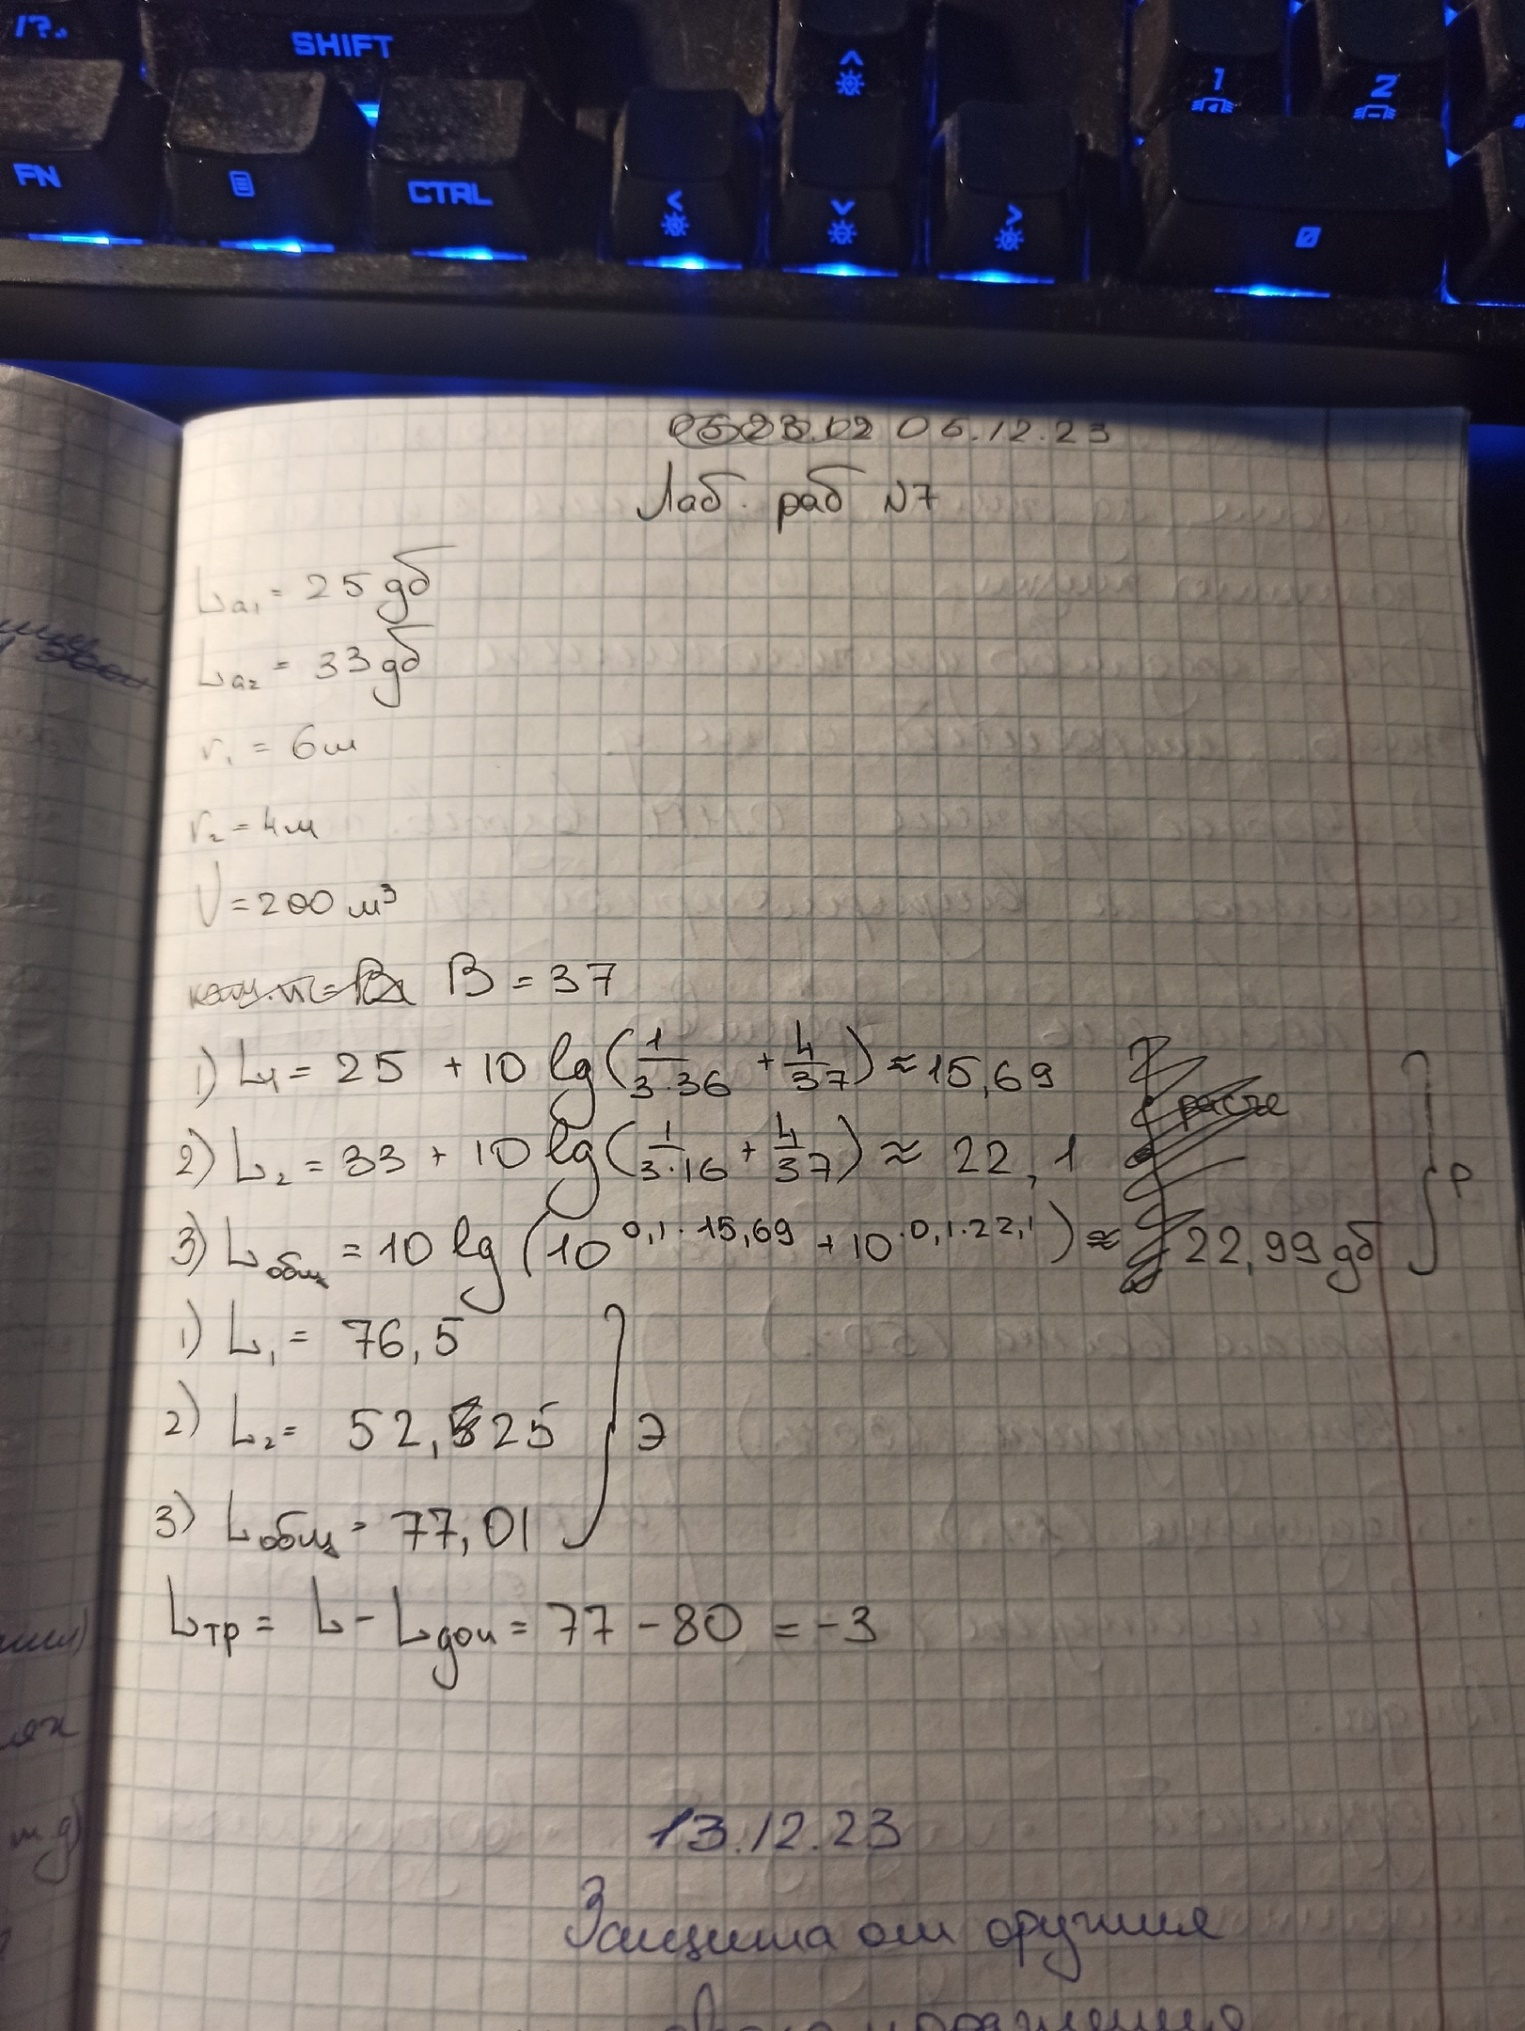 !?.,
SHIFT
1
2
FN
CTRL
0
06.12.23
Лаб. раб №7
La₁ = 25 дб
La₂ = 33 дб
r₁ = 6 м
r₂ = 4 м
V = 200 м³
B = 37
1) L₁ = 25 + 10 lg(1/3·36 + 4/37) ≈ 15,69
2) L₂ = 33 + 10 lg(1/3·16 + 4/37) ≈ 22,1
3) Lобщ = 10 lg(10^0,1·15,69 + 10^0,1·22,1) ≈ 22,99 дб
Р
1) L₁ = 76,5
2) L₂ = 52,525
3) Lобщ = 77,01
Э
Lтр = L - Lдоп = 77 - 80 = -3
13.12.23
Защита от оружия